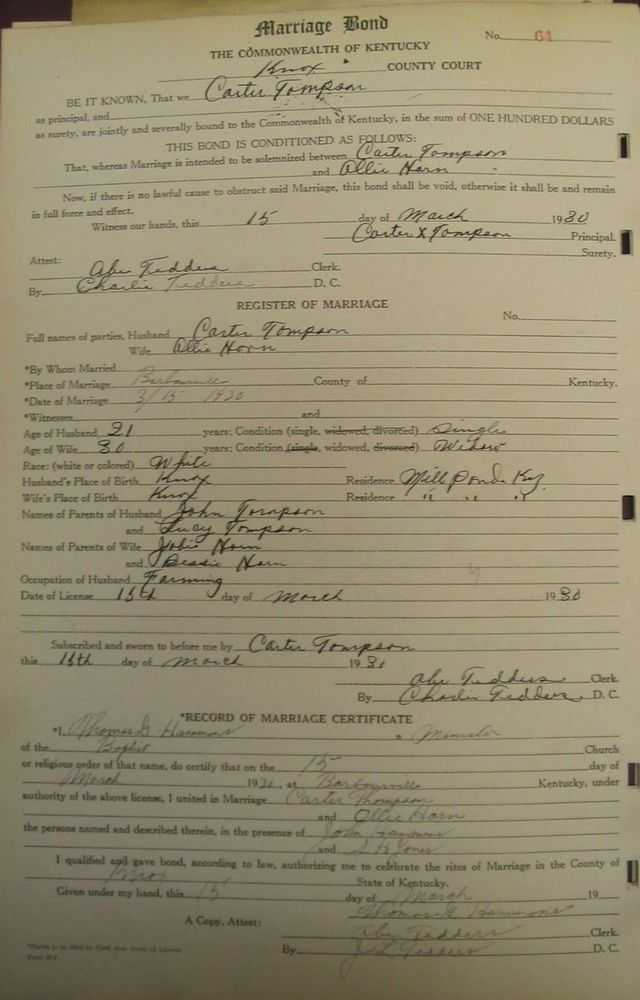 Marriage Bond
No. 61
THE COMMONWEALTH OF KENTUCKY
Knox COUNTY COURT
BE IT KNOWN, That we Carter Tompson
as principal, and
as surety, are jointly and severally bound to the Commonwealth of Kentucky, in the sum of ONE HUNDRED DOLLARS
THIS BOND IS CONDITIONED AS FOLLOWS:
That, whereas Marriage is intended to be solemnized between Carter Tompson
and Ollie Horn
Now, if there is no lawful cause to obstruct said Marriage, this bond shall be void, otherwise it shall be and remain
in full force and effect.
Witness our hands, this 15 day of March 1930
Carter X Tompson Principal.
Surety.
Attest:
Abe Tedders Clerk.
By Charlie Tedders D. C.
REGISTER OF MARRIAGE
No.
Full names of parties, Husband Carter Tompson
Wife Ollie Horn
*By Whom Married
*Place of Marriage Barbourville County of Kentucky.
*Date of Marriage 3/15 1930
*Witnesses and
Age of Husband 21 years; Condition (single, widowed, divorced) Single
Age of Wife 30 years; Condition (single, widowed, divorced) Widow
Race: (white or colored) White
Husband's Place of Birth Knox Residence Mill Pond Ky.
Wife's Place of Birth Knox Residence " " "
Names of Parents of Husband John Tompson
and Lucy Tompson
Names of Parents of Wife Jobie Horn
and Bessie Horn
Occupation of Husband Farming
Date of License 15th day of March 1930
Subscribed and sworn to before me by Carter Tompson
this 15th day of March 1930
Abe Tedders Clerk.
By Charlie Tedders D. C.
*RECORD OF MARRIAGE CERTIFICATE
*I, Thomas G Hammons a Minister
of the Baptist Church
or religious order of that name, do certify that on the 15 day of
March 1930, at Barbourville Kentucky, under
authority of the above license, I united in Marriage Carter Thompson
and Ollie Horn
the persons named and described therein, in the presence of John Hammons
and Jones
I qualified and gave bond, according to law, authorizing me to celebrate the rites of Marriage in the County of
Knox State of Kentucky.
Given under my hand, this 15 day of March 19
Thomas G Hammons
A Copy, Attest: Abe Tedders Clerk.
By J L Tedders D. C.